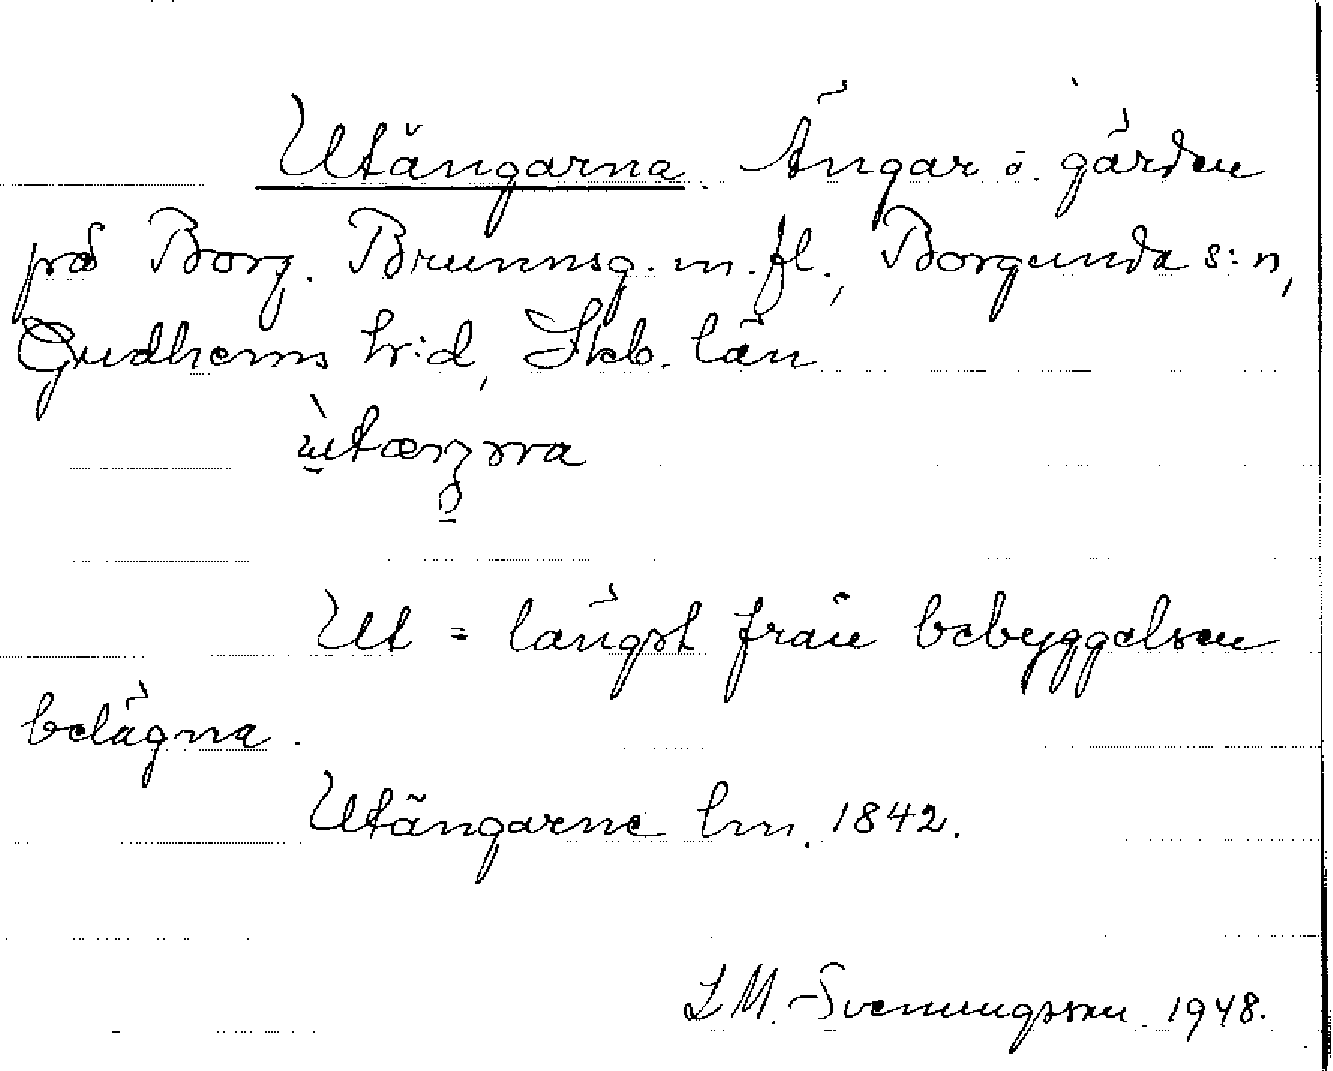 Utängarna. Ängar ö. gården
på Borg. Brunnsg. m. fl., Borgunda s:n,
Gudhems h:d, Skb. län
Ut = längst från bebyggelsen
belägna.
Utängarne lm. 1842.
L M. Svenungsson. 1948.